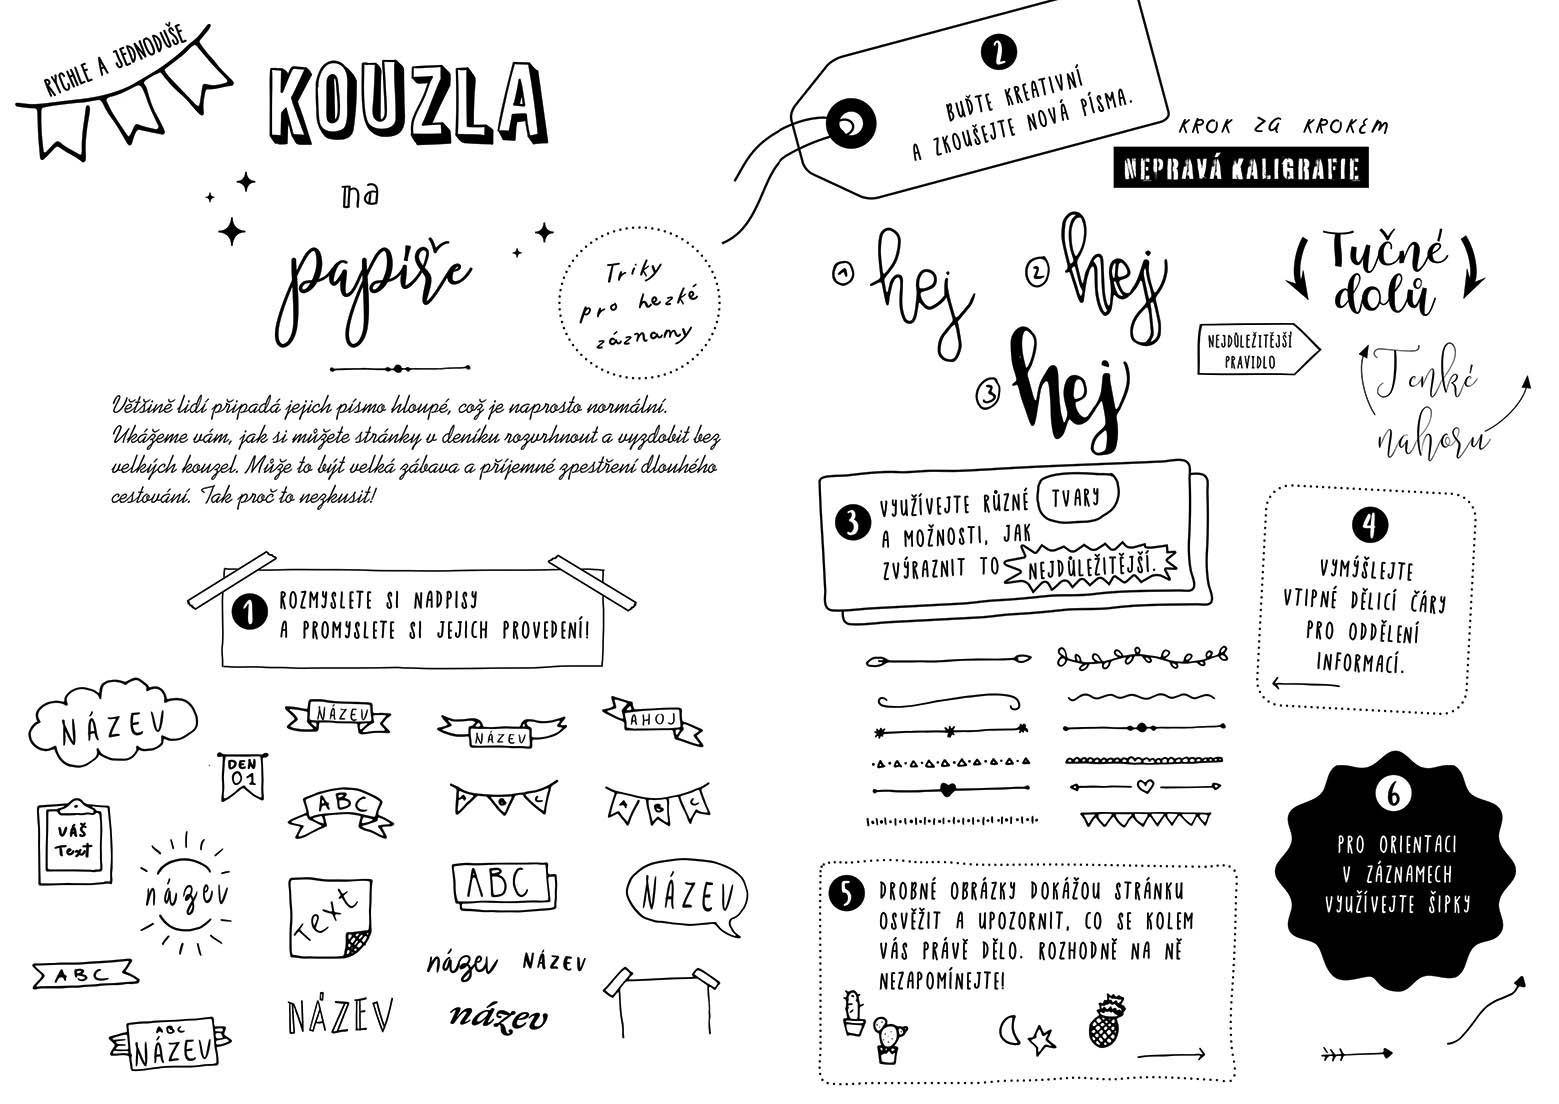 RYCHLE A JEDNODUŠE
KOUZLA
na
papíře
Triky
pro hezké
záznamy
Většině lidí připadá jejich písmo hloupé, což je naprosto normální.
Ukážeme vám, jak si můžete stránky v deníku rozvrhnout a vyzdobit bez
velkých kouzel. Může to být velká zábava a příjemné zpestření dlouhého
cestování. Tak proč to nezkusit!
1
ROZMYSLETE SI NADPISY
A PROMYSLETE SI JEJICH PROVEDENÍ!
NÁZEV
NÁZEV
NÁZEV
AHOJ
DEN
01
ABC
A B C
A B C
VÁŠ
Text
název
Text
ABC
NÁZEV
ABC
název NÁZEV
NÁZEV
název
ABC
NÁZEV
2
BUĎTE KREATIVNÍ
A ZKOUŠEJTE NOVÁ PÍSMA.
KROK ZA KROKEM
NEPRAVÁ KALIGRAFIE
1 hej
2 hej
3 hej
Tučné
dolů
NEJDŮLEŽITĚJŠÍ
PRAVIDLO
Tenké
nahoru
3
VYUŽÍVEJTE RŮZNÉ TVARY
A MOŽNOSTI, JAK
ZVÝRAZNIT TO NEJDŮLEŽITĚJŠÍ.
4
VYMÝŠLEJTE
VTIPNÉ DĚLICÍ ČÁRY
PRO ODDĚLENÍ
INFORMACÍ.
5
DROBNÉ OBRÁZKY DOKÁŽOU STRÁNKU
OSVĚŽIT A UPOZORNIT, CO SE KOLEM
VÁS PRÁVĚ DĚLO. ROZHODNĚ NA NĚ
NEZAPOMÍNEJTE!
6
PRO ORIENTACI
V ZÁZNAMECH
VYUŽÍVEJTE ŠIPKY